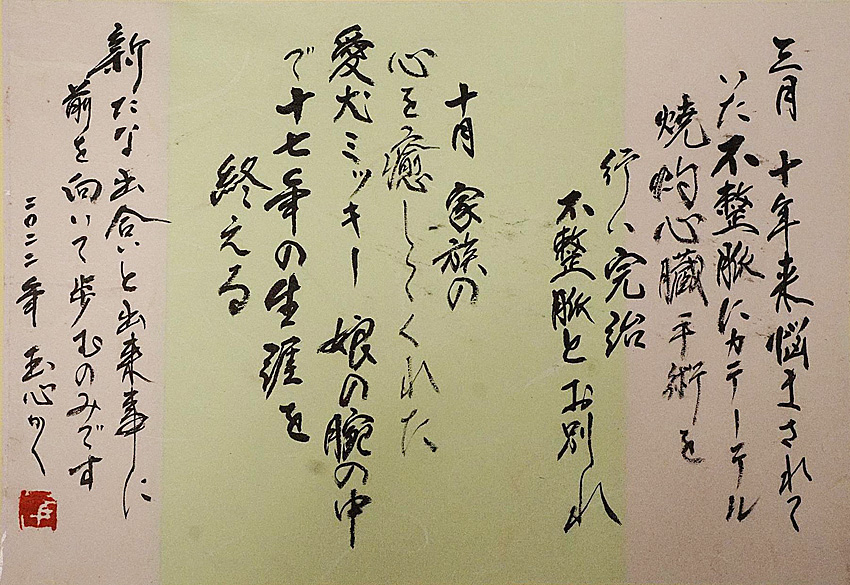 三月 十年来悩まされて
いた不整脈にカテーテル
焼灼心臓手術を
行い完治
不整脈とお別れ
十月 家族の
心を癒してくれた
愛犬ミッキー 娘の腕の中
で十七年の生涯を
終える
新たな出合いと出来事に
前を向いて歩むのみです
二〇二二年 心かく